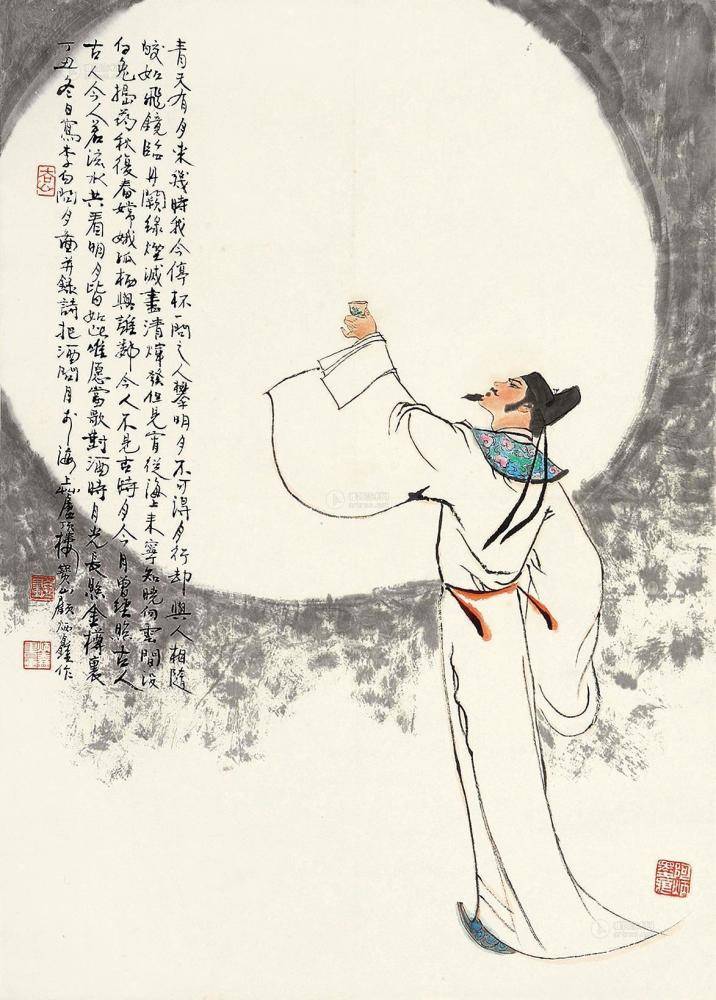 青天有月来幾時我今停杯一問之人攀明月不可得月行却與人相隨
皎如飛鏡臨丹闕綠煙滅盡清煇發但見宵從海上来寧知曉向雲間沒
白兔搗藥秋復春嫦娥孤栖與誰鄰今人不見古時月今月曾經照古人
古人今人若流水共看明月皆如此唯愿當歌對酒時月光長照金樽裏
丁丑冬日寫李白問月圖并錄詩把酒問月於海上樓寶山顧炳鑫作